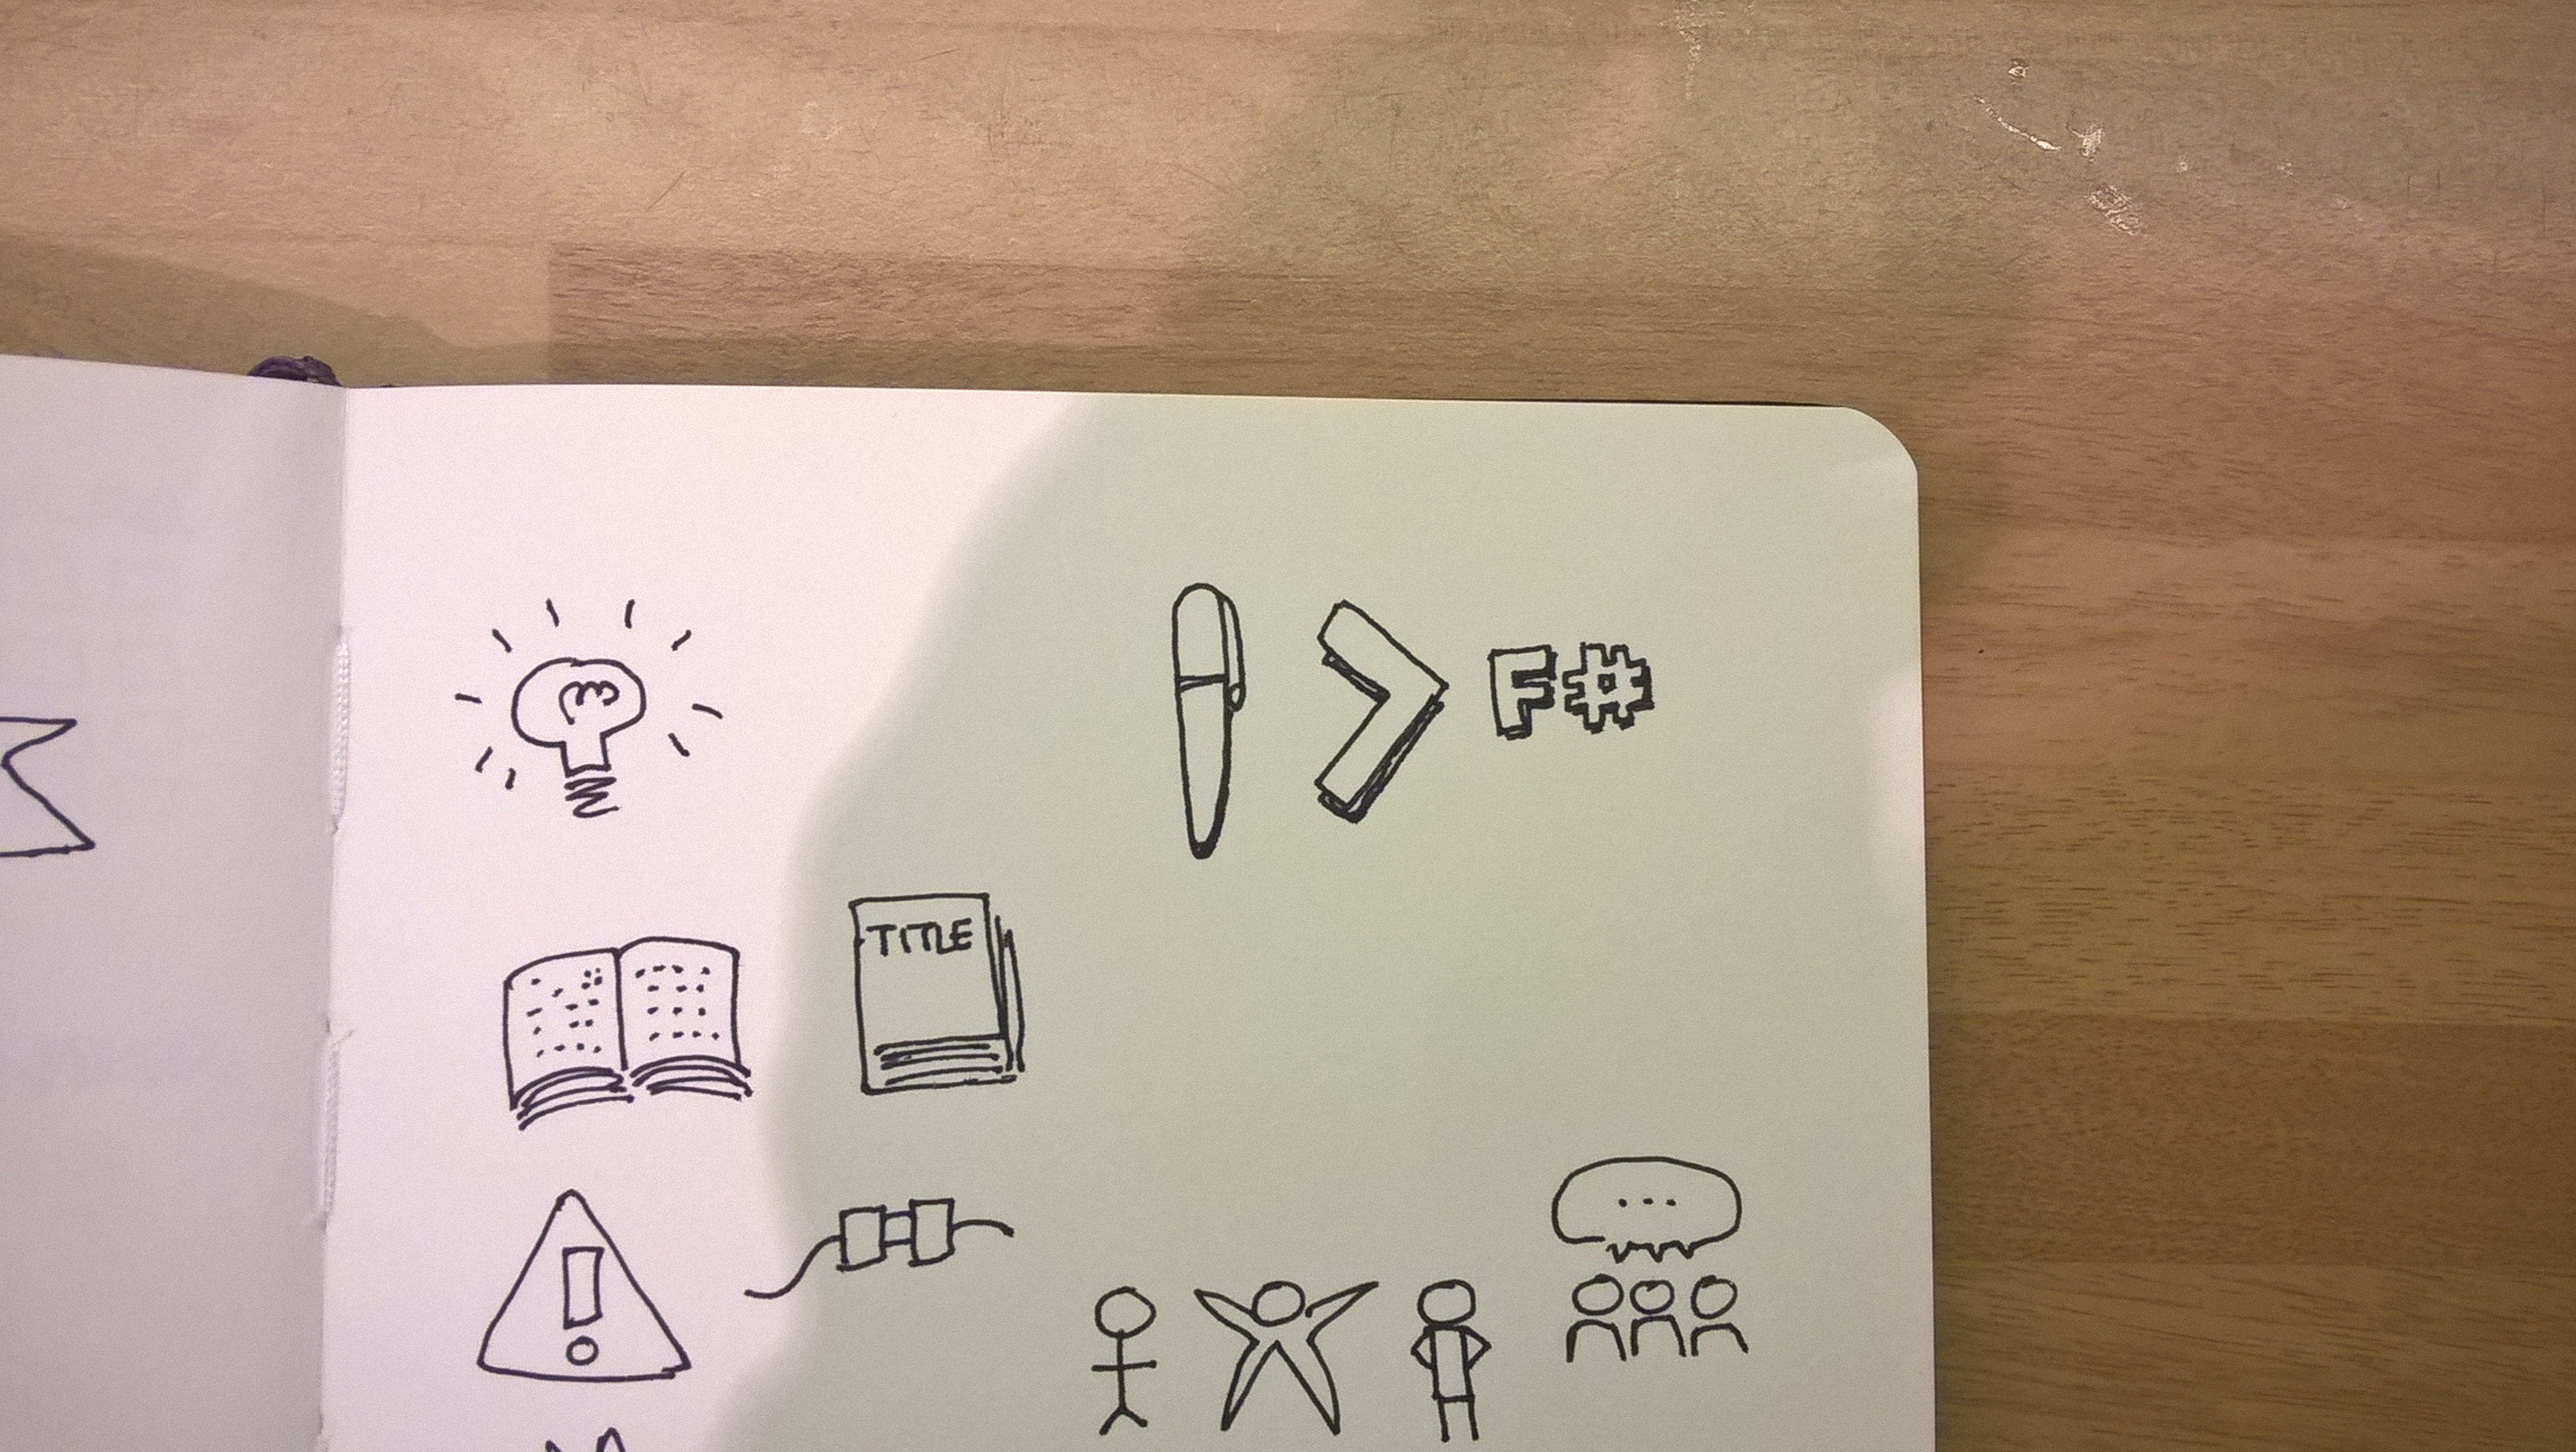 > F#
TITLE
!
...